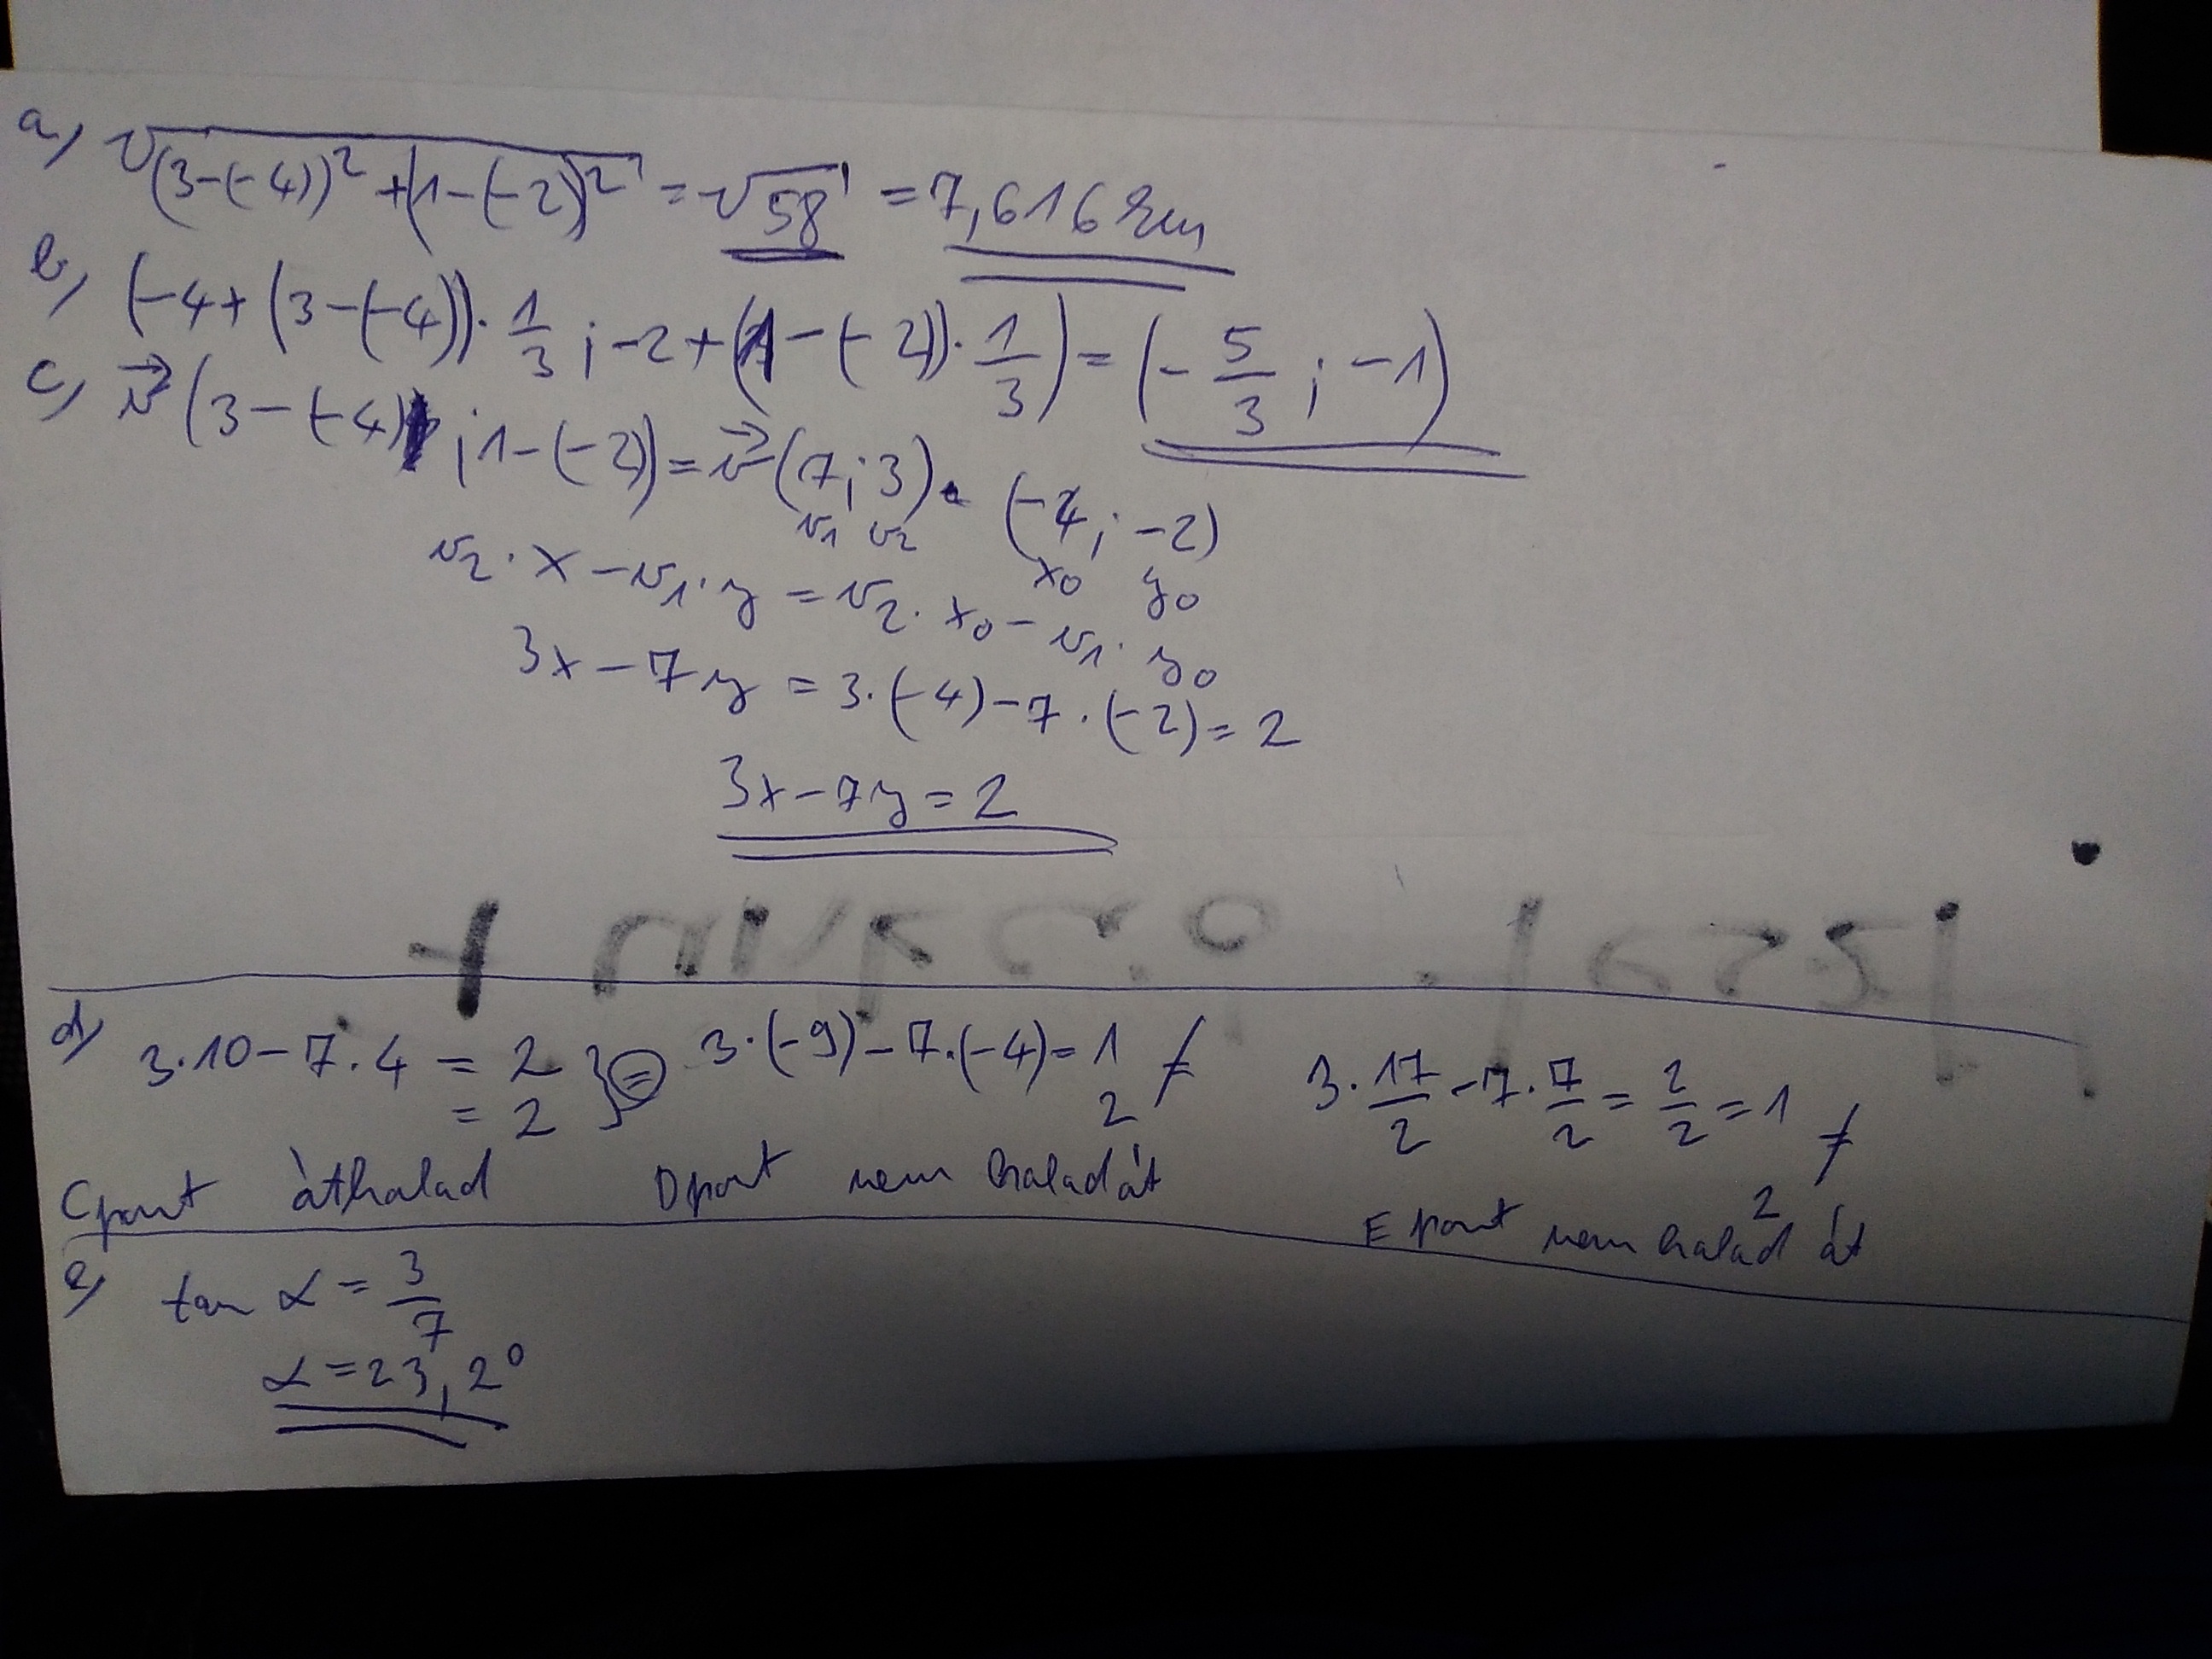 a, √(3-(-4))² + (1-(-2))² = √58 = 7,616 km
b, (-4 + (3-(-4))·1/3 ; -2 + (1-(-2))·1/3) = (-5/3 ; -1)
c, v⃗(3-(-4) ; 1-(-2)) = v⃗(7 ; 3) (-4 ; -2)
v₁ v₂ x₀ y₀
v₂·x - v₁·y = v₂·x₀ - v₁·y₀
3x - 7y = 3·(-4) - 7·(-2) = 2
3x - 7y = 2
d, 3·10 - 7·4 = 2 } = 3·(-9) - 7·(-4) = 1 ≠ 3·17/2 - 7·7/2 = 2/2 = 1 ≠
= 2 2 2
C pont áthalad D pont nem halad át E pont nem halad át
e, tan α = 3/7
α = 23,2°